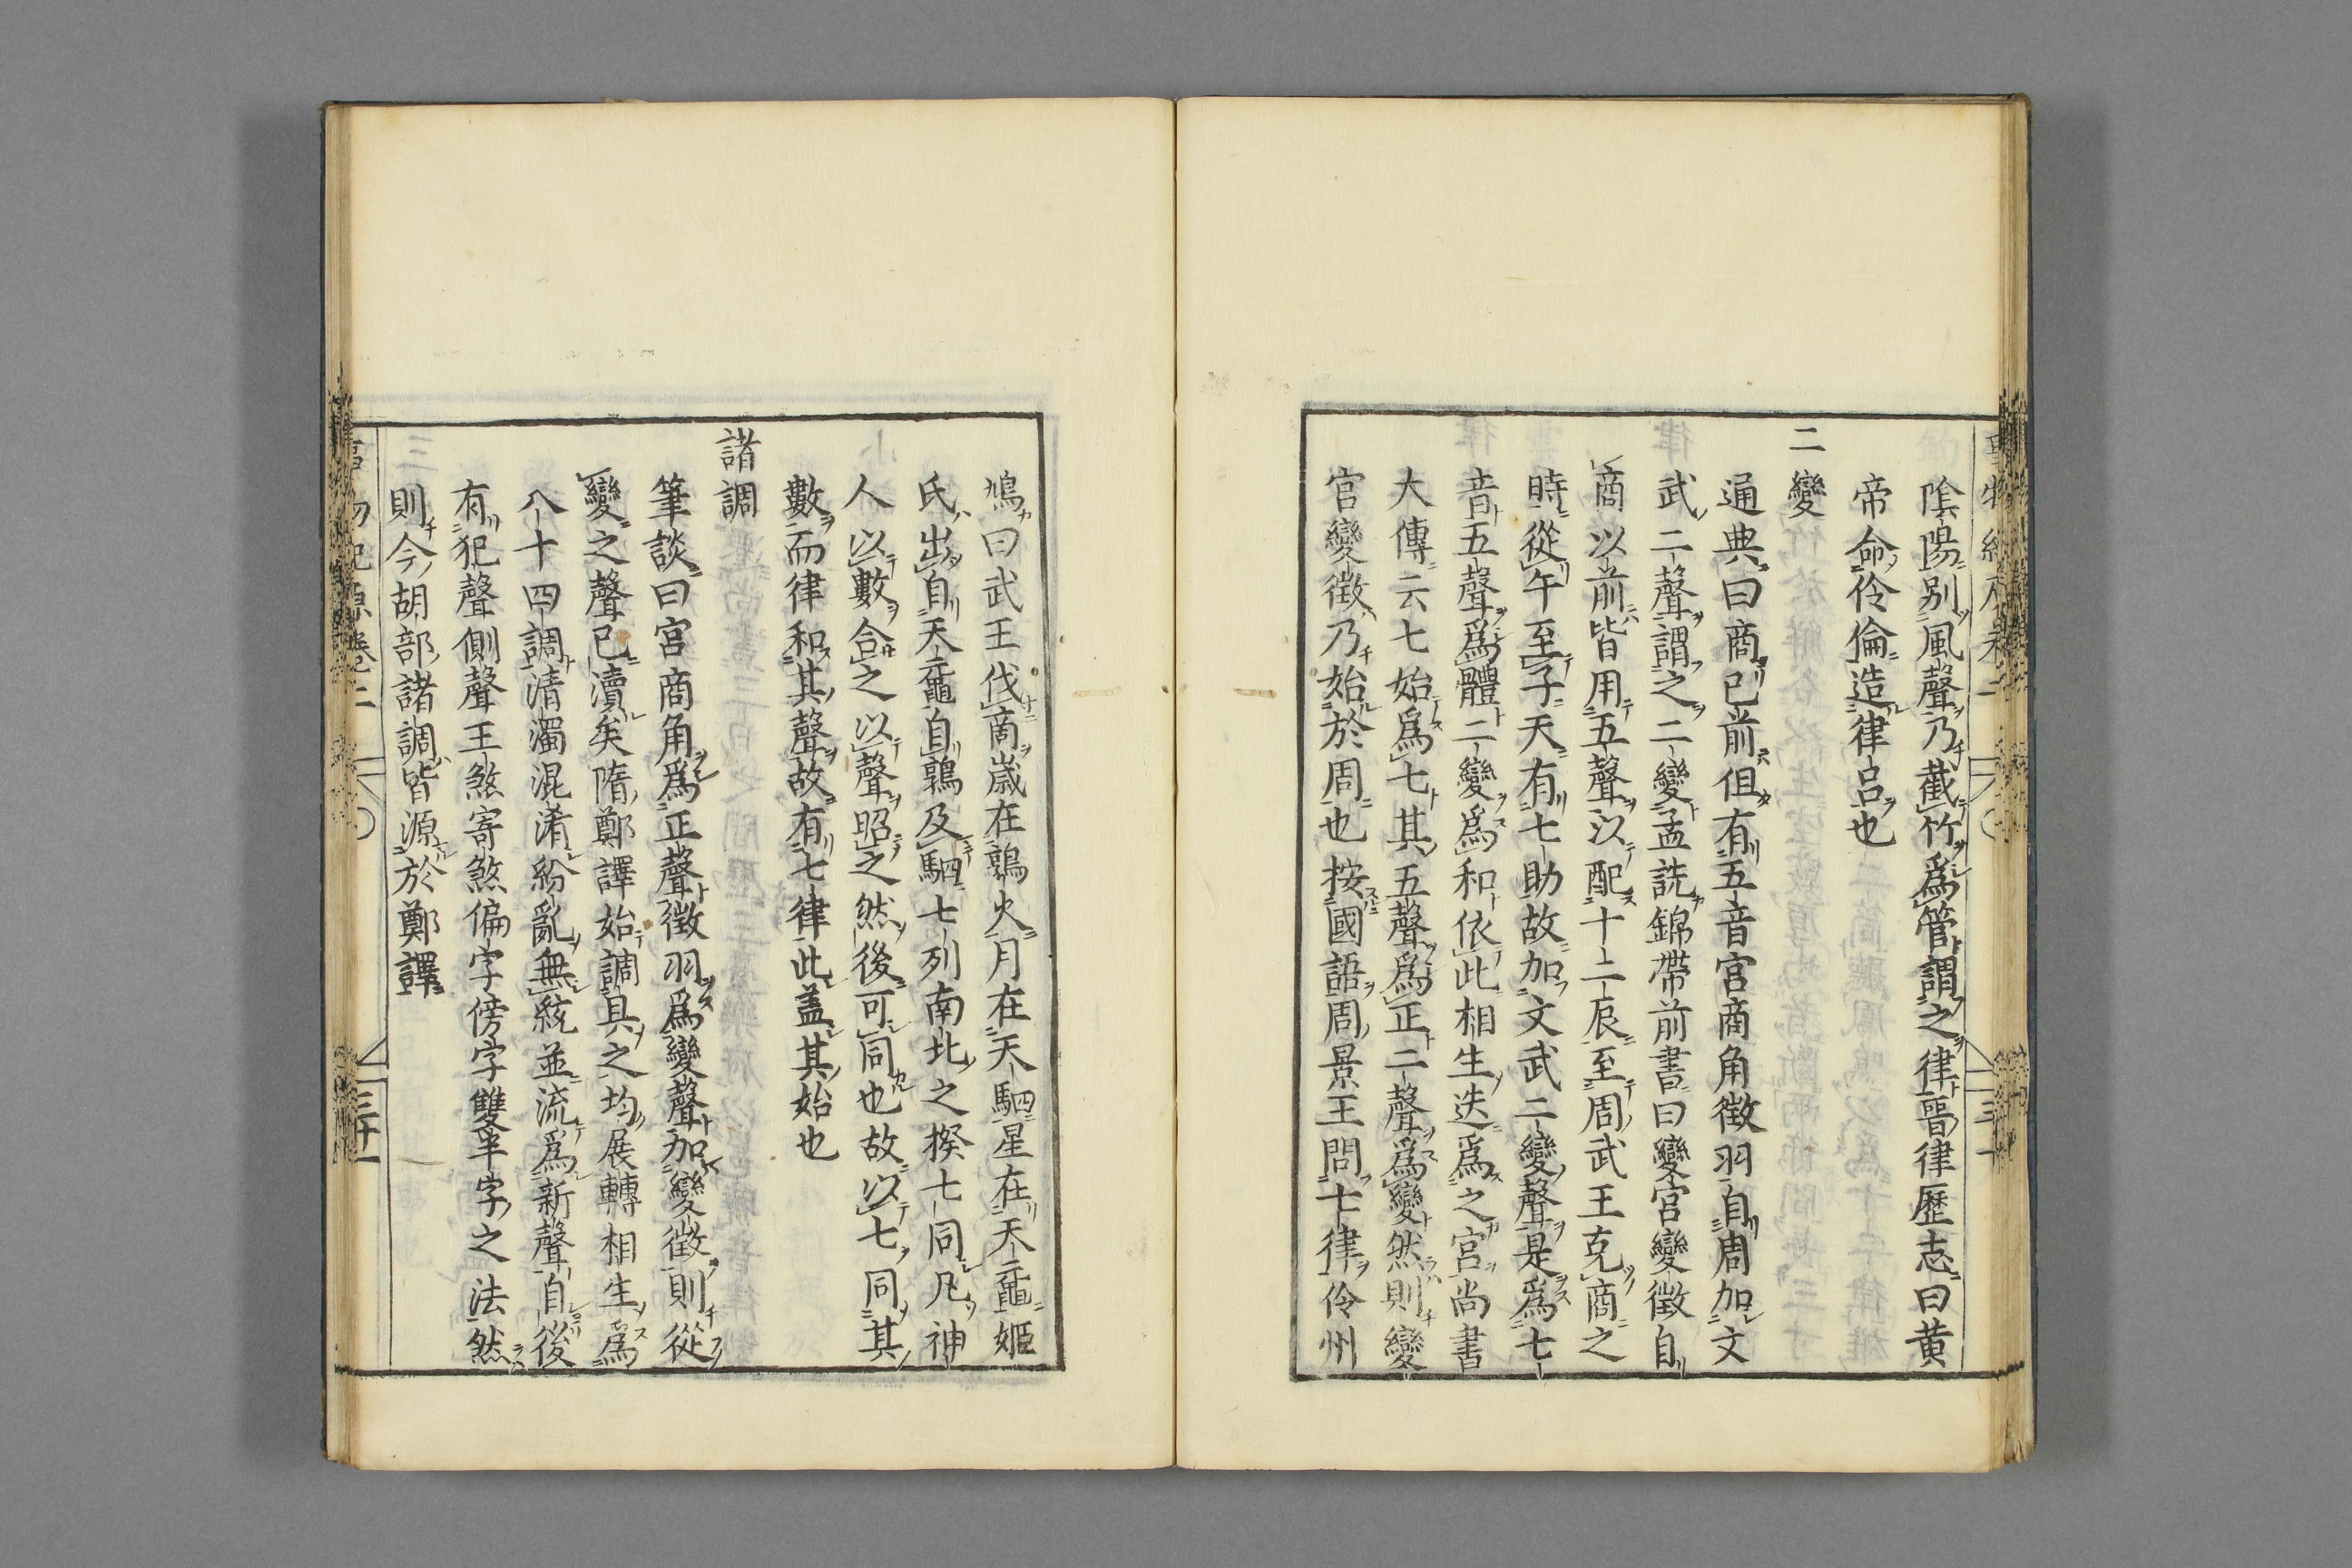 陰陽別風聲乃截竹爲管謂之律晉律歷志曰黄
帝命伶倫造律呂也
二變
通典曰商已前但有五音宮商角徵羽自周加文
武二聲謂之二變孟詵錦帶前書曰變宮變徵自
商以前皆用五聲以配十二辰至周武王克商之
時從午至子天有七助故加文武二變聲是爲七
音五聲爲體二變爲和依此相生迭爲之宮尚書
大傳云七始爲七其五聲爲正二聲爲變然則變
官變徵乃始於周也按國語周景王問七律伶州
鳩曰武王伐商歲在鶉火月在天駟星在天黿姬
氏出自天黿自鶉及駟七列南北之揆七同凡神
人以數合之以聲昭之然後可同也故以七同其
數而律和其聲故有七律此盖其始也
諸調
筆談曰宮商角爲正聲徵羽爲變聲加變徵則從
變之聲已瀆矣隋鄭譯始調具之均展轉相生爲
八十四調清濁混淆紛亂無統並流爲新聲自後
有犯聲側聲王煞寄煞偏字傍字雙半字之法然
則今胡部諸調皆源於鄭譯
事物紀原卷二
三十一